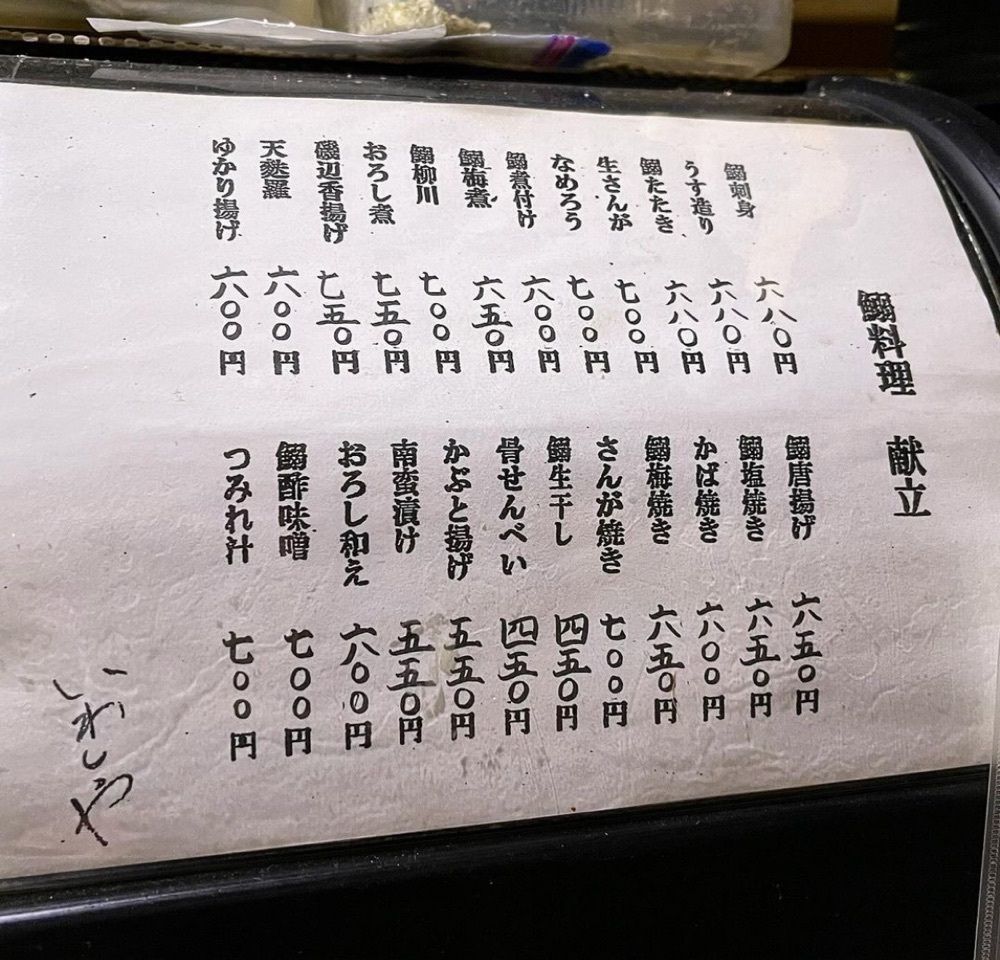 鰯料理 献立
鰯刺身 六八〇円
うす造り 六八〇円
鰯たたき 六八〇円
生さんが 七〇〇円
なめろう 七〇〇円
鰯煮付け 六〇〇円
鰯梅煮 六五〇円
鰯柳川 七〇〇円
おろし煮 七五〇円
磯辺香揚げ 七五〇円
天麩羅 六〇〇円
ゆかり揚げ 六〇〇円
鰯唐揚げ 六五〇円
鰯塩焼き 六五〇円
かば焼き 六〇〇円
鰯梅焼き 六五〇円
さんが焼き 七〇〇円
鰯生干し 四五〇円
骨せんべい 四五〇円
かぶと揚げ 五五〇円
南蛮漬け 五五〇円
おろし和え 六〇〇円
鰯酢味噌 七〇〇円
つみれ汁 七〇〇円
いわしや